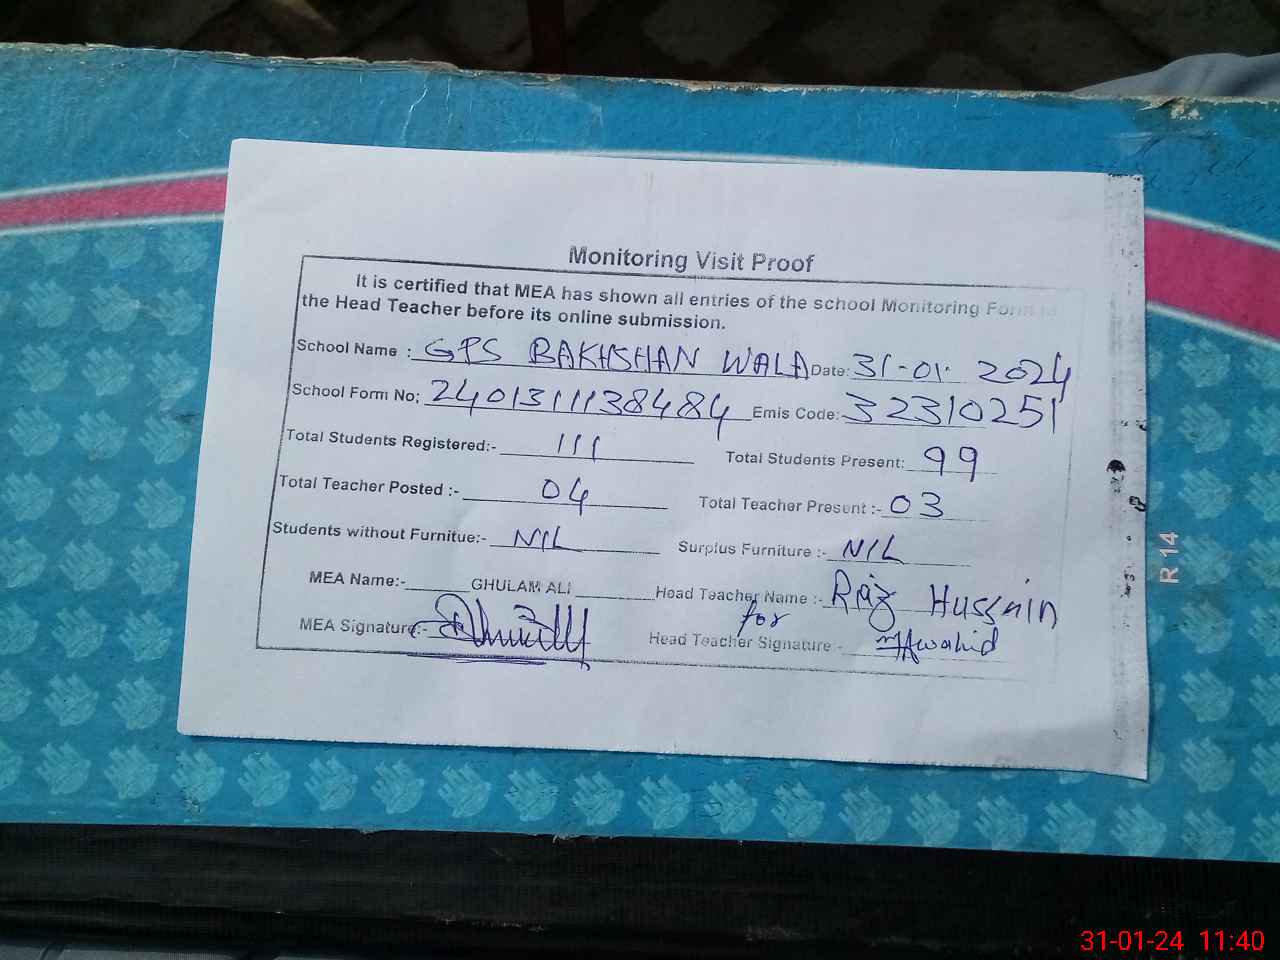 Monitoring Visit Proof
It is certified that MEA has shown all entries of the school Monitoring Form to
the Head Teacher before its online submission.
School Name : GPS BAKHSHAN WALA Date: 31-01-2024
School Form No: 2401311138484 Emis Code: 32310251
Total Students Registered:- 111 Total Students Present: 99
Total Teacher Posted :- 04 Total Teacher Present :- 03
Students without Furnitue:- NIL Surplus Furniture :- NIL
MEA Name:- GHULAM ALI Head Teacher Name :- Riaz Hussain
for
MEA Signature:- Head Teacher Signature :-
R 14
31-01-24 11:40